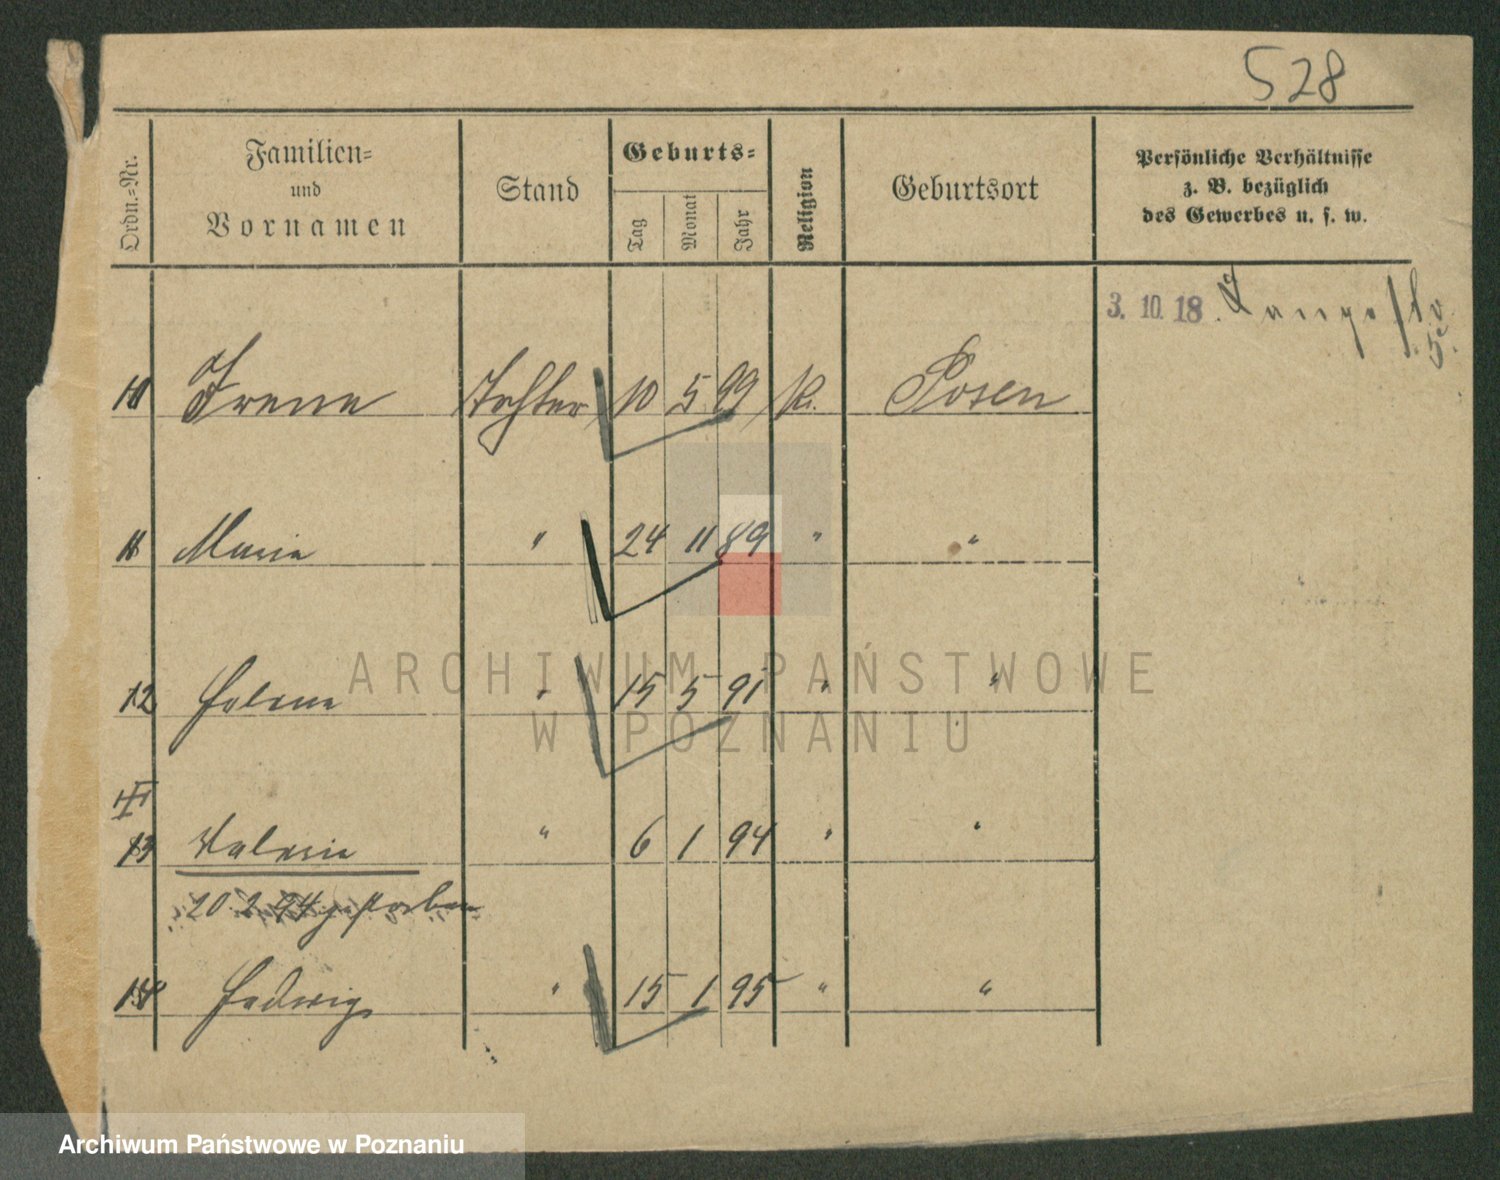 528
Ordn.-Nr. Familien- und Vornamen Stand Geburts- Tag Monat Jahr Religion Geburtsort Persönliche Verhältnisse z. B. bezüglich des Gewerbes u. s. w.
3. 10. 18.
10 Irene Tochter 10 5 99 k. Posen
11 Marie " 24 11 89 " "
12 Helene " 15 5 91 " "
13 Valerie " 6 1 94 " "
20. 2. 94 gestorben
14 Hedwig " 15 1 95 " "
ARCHIWUM PAŃSTWOWE
W POZNANIU
Archiwum Państwowe w Poznaniu